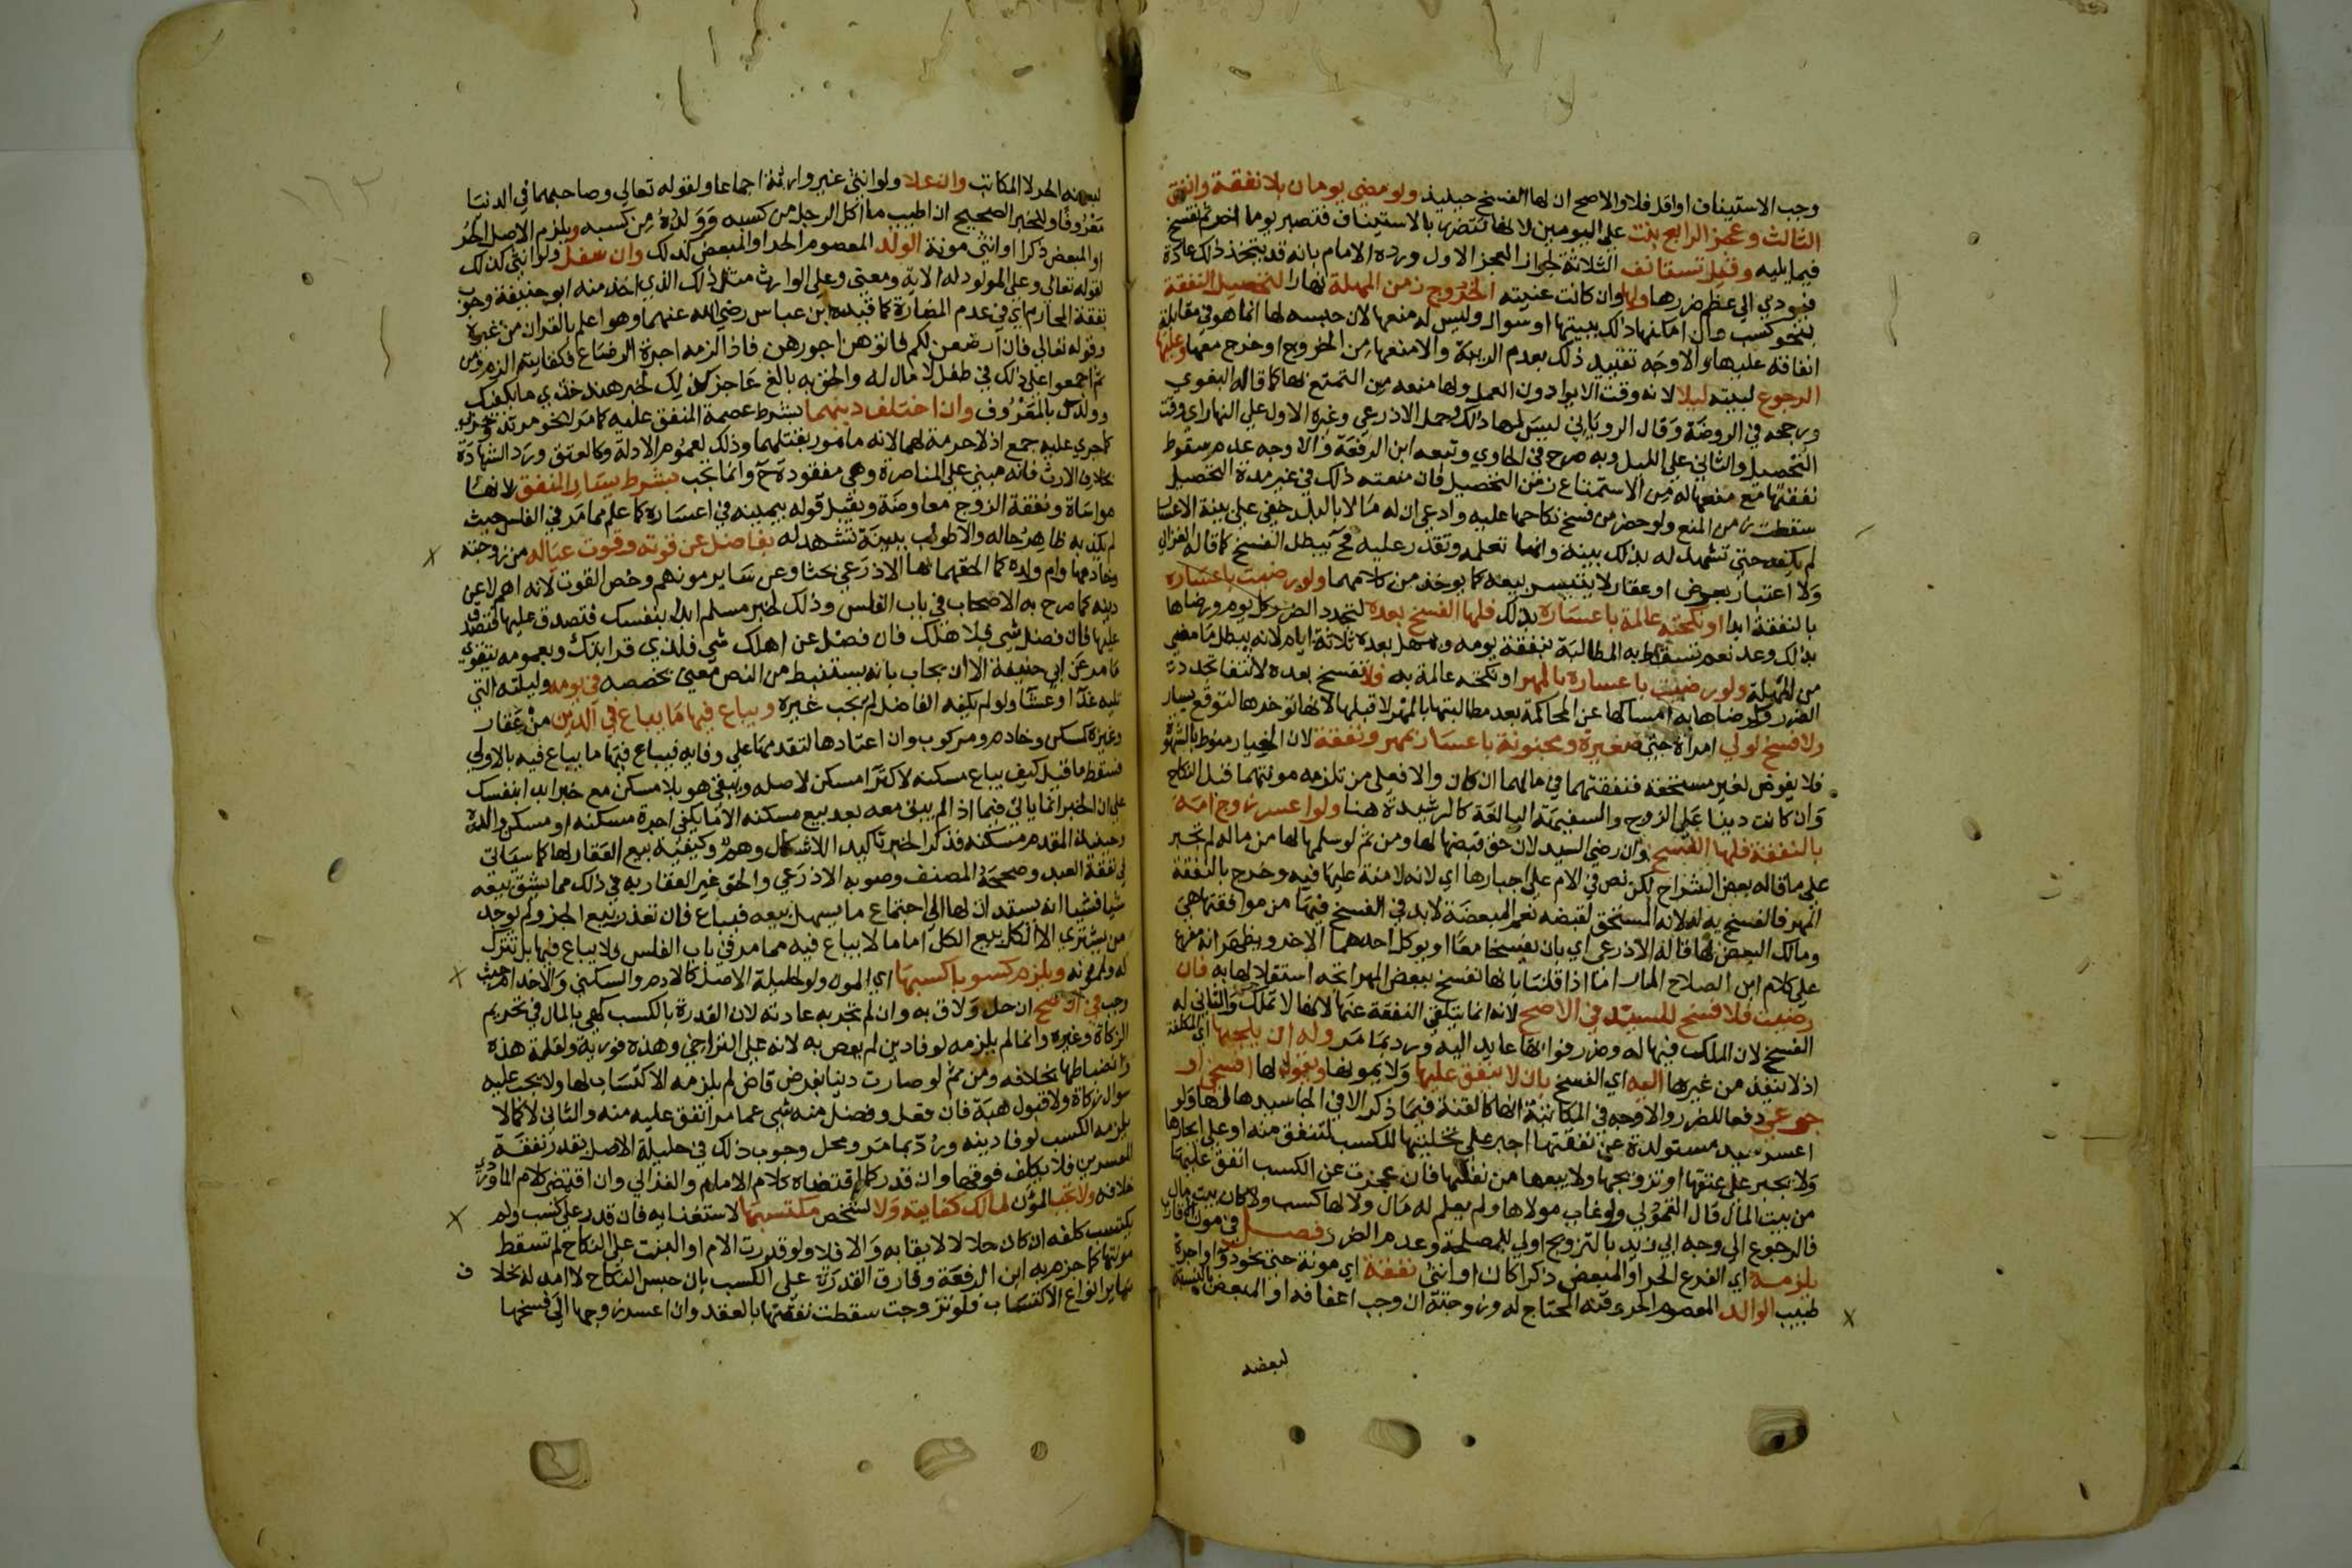 وجب الاستيناف اواقل فلا والاصح ان لها الفسخ حينيذ ولو مضي يومان بلا نفقة وانفق
الثالث وعجز الرابع بنت علي اليومين لانها تتضرر بالاستيناف فتصبر يوما اخر ثم تفسخ
فيما يليه وقيل تستانف الثلاثة لجواز العجز الاول ورده الامام بانه قد يتخذ ذلك عادة
فيودي الي عظم ضررها ولها وان كانت غنيته الخروج زمن المهلة نهارا لتحصيل النفقة
بنحو كسب وان امكنها ذلك ببيتها او سوال وليس له منعها لان حبسه لها انما هو في مقابلة
انفاقه عليها والاوجه تقييد ذلك بعدم الريبة والا منعها من الخروج او خرج معها وعليها
الرجوع لبيته ليلا لانه وقت الايوا دون العمل ولها منعه من التمتع بها كما قاله البغوي
ورجحه في الروضة وقال الروياني ليس لها ذلك وحمل الاذرعي وغيره الاول علي النهار اي وقت
التحصيل والثاني علي الليل وبه صرح في الحاوي وتبعه ابن الرفعة والاوجه عدم سقوط
نفقتها مع منعها له من الاستمتاع زمن التحصيل فان منعته ذلك في غير مدة التحصيل
سقطت زمن المنع ولو حضر من فسخ نكاحها عليه وادعي ان له مالا بالبلد خفي علي بينة الاعسار
لم يكفه حتي تشهد له بذلك بينة وانها تعلمه وتقدر عليه فح يبطل الفسخ كما قاله الغزالي
ولا اعتبار بعرض او عقار لا يتيسر بيعه كما يوخذ من كلامهما ولو رضيت باعساره
بالنفقة ابدا او نكحته عالمة باعساره بذلك فلها الفسخ بعده لتجدد الضرر كل يوم ورضاها
بذلك وعد نعم تسقط به المطالبة بنفقة يومه وتمهل بعده ثلاثة ايام لانه يبطل ما مضي
من المهلة ولو رضيت باعساره بالمهر او نكحته عالمة به فلا تفسخ بعده لانتفا تجدد
الضرر وكرضاها به امساكها عن المحاكمة بعد مطالبتها بالمهر لا قبلها لانها توخرها لتوقع يسار
ولا فسخ لولي امراة حتي صغيرة ومجنونة باعسار بمهر ونفقة لان الخيار منوط بالشهوة
فلا يفوض لغير مستحقه فنفقتهما في مالهما ان كان والا فعلي من تلزمه مونتهما قبل النكاح
وان كانت دينا علي الزوج والسفيهة البالغة كالرشيدة هنا ولو اعسر زوج امة
بالنفقة فلها الفسخ وان رضي السيد لان حق قبضها لها ومن ثم لو سلمها لها من ماله لم تجبر
علي ما قاله بعض الشراح لكن نص في الام علي اجبارها اي لانه لا منة عليها فيه وخرج بالنفقة
المهر فالفسخ به له لانه المستحق لقبضه نعم المبعضة لا بد في الفسخ فيها من موافقتها هي
ومالك البعض لها قاله الاذرعي اي بان يفسخا معا او يوكل احدهما الاخر ويظهر انه مفرع
علي كلام ابن الصلاح المار اما اذا قلنا بانها تفسخ ببعض المهر اتجه استقلالها به فان
رضيت فلا فسخ للسيد في الاصح لانه انما يتلقي النفقة عنها لانها لا تملك والثاني له
الفسخ لان الملك فيها له وضرر فواتها عايد اليه ورد بما مر وله ان يلجيها اي المكلفة
اذ لا ينفذ من غيرها اليه اي الفسخ بان لا ينفق عليها ولا يمونها ويقول لها افسخي او
جوعي دفعا للضرر والاوجه في المكاتبة انها كالقنة فيما ذكر الا في الجا سيدها لها ولو
اعسر سيد مستولدة عن نفقتها اجبر علي تخليتها للكسب لتنفق منه او علي ايجارها
ولا يجبر علي عتقها او تزويجها ولا بيعها من نفسها فان عجزت عن الكسب انفق عليها
من بيت المال قال القمولي ولو غاب مولاها ولم يعلم له مال ولا لها كسب ولا كان بيت مال
فالرجوع الي وجه ابي زيد بالتزويج اولي للمصلحة وعدم الضرر فصل في مون الاقارب
يلزمه اي الفرع الحر او المبعض ذكرا كان او انثي نفقة اي مونة حتي نحو دوا واجرة
طبيب الوالد المعصوم الحر وقنه المحتاج له وزوجته ان وجب اعفافه او المبعض بالنسبة
لبعضه
لبعضه الحر لا المكاتب وان علا ولو انثي غير وارثة اجماعا ولقوله تعالي وصاحبهما في الدنيا
معروفا وللخبر الصحيح ان اطيب ما اكل الرجل من كسبه وولده من كسبه ويلزم الاصل الحر
او المبعض ذكرا او انثي مونة الولد المعصوم الحر او المبعض كذلك وان سفل ولو انثي كذلك
لقوله تعالي وعلي المولود له الاية ومعني وعلي الوارث مثل ذلك الذي اخذ منه ابو حنيفة وجوب
نفقة المحارم اي في عدم المضارة كما قيده ابن عباس رضي الله عنهما وهو اعلم بالقران من غيره
وقوله تعالي فان ارضعن لكم فاتوهن اجورهن فاذا الزمه اجرة الرضاع فكفايته الزم ومن
ثم اجمعوا علي ذلك في طفل لا مال له والحق به بالغ عاجز كذلك لخبر هند خذي ما يكفيك
وولدك بالمعروف وان اختلف دينهما بشرط عصمة المنفق عليه كما مر لا نحو مرتد وحربي
كما جري عليه جمع اذ لا حرمة لهما لانه مامور بقتلهما وذلك لعموم الادلة وكالعتق ورد الشهادة
بخلاف الارث فانه مبني علي المناصرة وهي مفقودة ح وانما تجب بشرط يسار المنفق لانها
مواساة ونفقة الزوج معاوضة ويقبل قوله بيمينه في اعساره كما علم مما مر في الفلس حيث
لم يكذبه ظاهر حاله والا طولب ببينة تشهد له بفاضل عن قوته وقوت عياله من زوجته
وخادمها وام ولده كما الحقهما بها الاذرعي بحثا وعن ساير مونهم وخص القوت لانه اهم لا عن
دينه كما صرح به الاصحاب في باب الفلس وذلك لخبر مسلم ابدا بنفسك فتصدق عليها
عليها فان فضل شي فلاهلك فان فضل عن اهلك شي فلذي قرابتك وبعمومه يتقوي
ما مر عن ابي حنيفة الا ان يجاب بانه يستنبط من النص معني يخصصه في يومه وليلته التي
تليه غدا وعشا ولو لم يكفه الفاضل لم يجب غيره ويباع فيها ما يباع في الدين من عقار
وغيره كمسكن وخادم ومركوب وان اعتادها لتقدمها علي وفايه فيباع فيها ما يباع فيه بالاولي
فسقط ما قيل كيف يباع مسكنه لاكترا مسكن لاصله ويبقي هو بلا مسكن مع خبر ابدا بنفسك
علي ان الخبر انما ياتي فيما اذا لم يبق معه بعد بيع مسكنه الا ما يكفي اجرة مسكنه او مسكن والده
وحينيذ المقدم مسكنه فذكر الخبر تاكيد للاشكال وهم وكيفية بيع العقار لها كما سياتي
في نفقة العبد وصححه المصنف وصوبه الاذرعي والحق غير العقار به في ذلك مما يشق بيعه
شيا فشيا انه يستدان لها الي اجتماع ما يسهل بيعه فيباع فان تعذر بيع الجزء ولم يوجد
من يشتري الا الكل بيع الكل اما ما لا يباع فيه مما مر في باب الفلس فلا يباع فيها بل تترك
له ولممونه ويلزم كسوبا كسبها اي المون ولو لحليلة الاصل كالادم والسكني والاخدام حيث
وجب في الاصح ان حل ولاق به وان لم تجر به عادته لان القدرة بالكسب كهي بالمال في تحريم
الزكاة وغيره وانما لم يلزمه لوفا دين لم يعص به لانه علي التراخي وهذه فورية ولقلة هذه
وانضباطها بخلافه ومن ثم لو صارت دينا بفرض قاض لم يلزمه الاكتساب لها ولا يجب عليه
سوال زكاة ولا قبول هبة فان فعل وفضل منه شي عما مر انفق عليه منه والثاني لا كما لا
يلزمه الكسب لوفا دينه ورد بما مر ومحل وجوب ذلك في حليلة الاصل بقدر نفقة
المعسرين فلا يكلف فوقها وان قدر كما اقتضاه كلام الامام والغزالي وان اقتضي كلام الماوردي
خلافه ولا تجب المون لمالك كفايته ولا لشخص مكتسبها لاستغنايه فان قدر علي كسب ولم
يكتسب كلفه ان كان حلالا لايقا به والا فلا ولو قدرت الام او البنت علي النكاح لم تسقط
مونتها كما جزم به ابن الرفعة وفارق القدرة علي الكسب بان حبس النكاح لا امد له بخلاف
ساير انواع الاكتساب فلو تزوجت سقطت نفقتها بالعقد وان اعسر زوجها الي فسخها